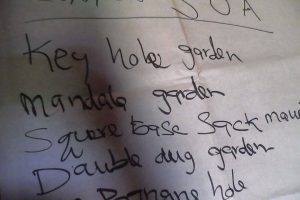 Key hole garden
Mandala garden
Square base Sack
Dauble dug garden
Banana hole